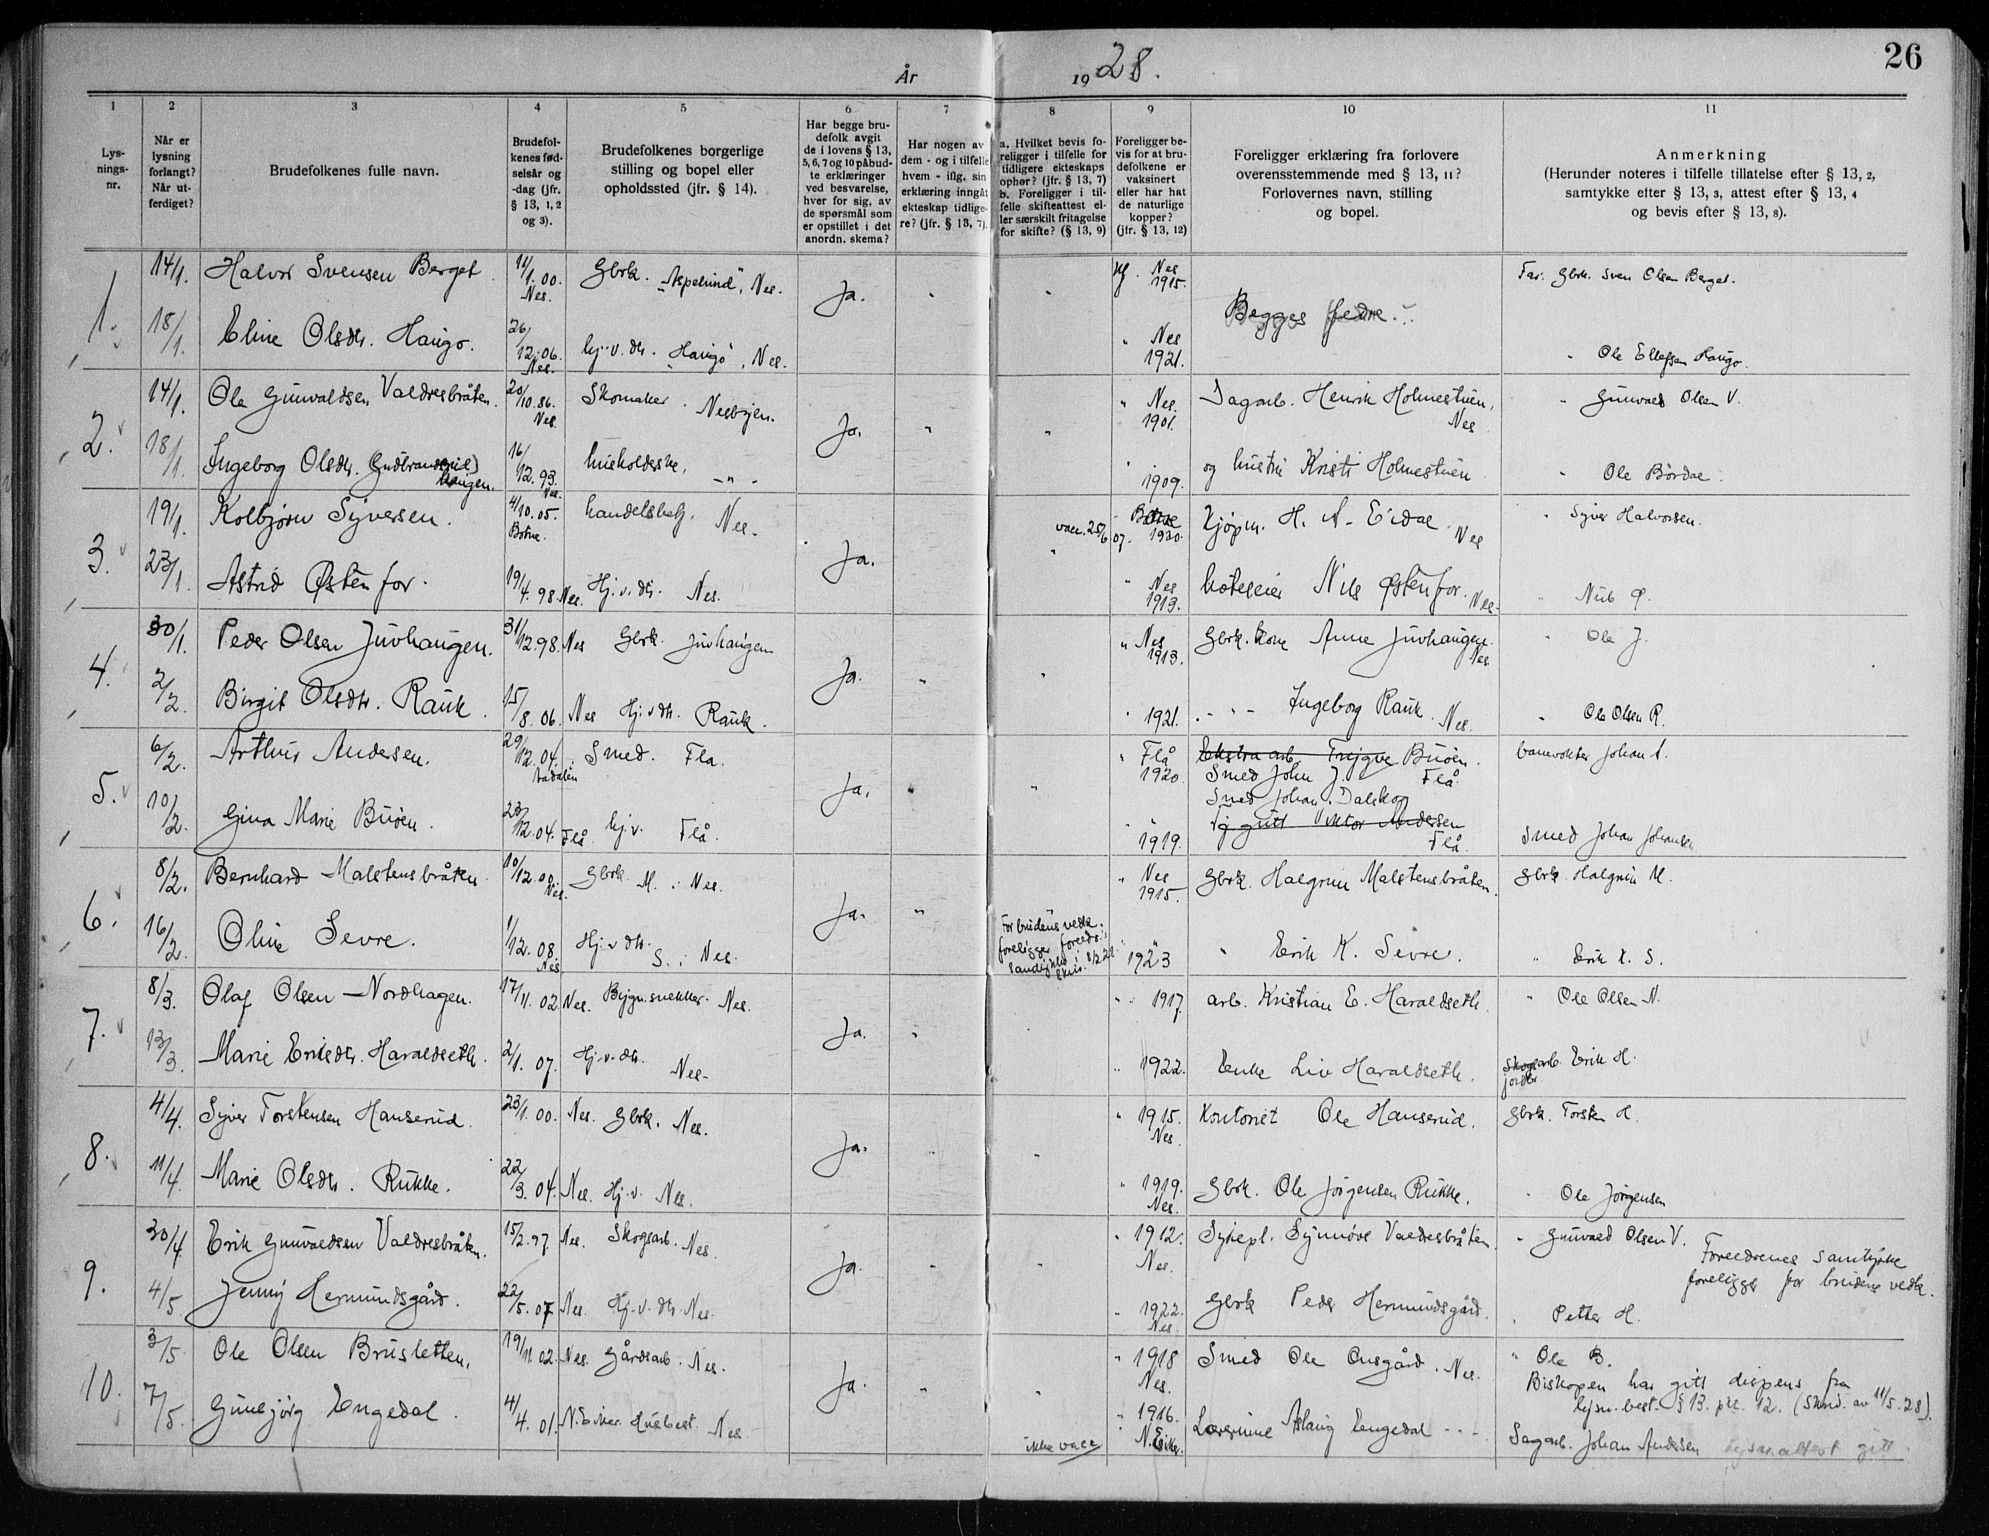 26
År 1928.
1 2 3 4 5 6 7 8 9 10 11
Lys-
nings-
nr.
Når er
lysning
forlangt?
Når ut-
ferdiget?
Brudefolkenes fulle navn.
Brudefol-
kenes fød-
selsår og
-dag (jfr.
§ 13, 1, 2
og 3).
Brudefolkenes borgerlige
stilling og bopel eller
opholdssted (jfr. § 14).
Har begge bru-
defolk avgit
de i lovens § 13,
5, 6, 7 og 10 påbud-
te erklæringer
ved besvarelse,
hver for sig, av
de spørsmål som
er opstillet i det
anordn. skema?
Har nogen av
dem - og i tilfelle
hvem - iflg. sin
erklæring inngåt
ekteskap tidlige-
re? (jfr. § 13, 7).
a. Hvilket bevis fo-
religger i tilfelle for
tidligere ekteskaps
ophør? (jfr. § 13, 7)
b. Foreligger i til-
felle skifteattest el-
ler særskilt fritagelse
for skifte? (§ 13, 9)
Foreligger be-
vis for at bru-
defolkene er
vaksinert
eller har hat
de naturlige
kopper?
(jfr. § 13, 12)
Foreligger erklæring fra forlovere
overensstemmende med § 13, 11?
Forlovernes navn, stilling
og bopel.
Anmerkning
(Herunder noteres i tilfelle tillatelse efter § 13, 2,
samtykke efter § 13, 3, attest efter § 13, 4
og bevis efter § 13, 8).
1. 14/1. Halvor Svensen Berget. 11/1.00. Nes. Gbrk. "Aspelund", Nes. Ja. " " Nes 1915. Begges fedre. Far. Gbrk. Sven Olsen Berget.
18/1. Eline Olsdtr. Haugo. 26/12.06. Nes. hj.v.dtr. "Haugo", Nes. " Nes 1921. " Ole Ellefsen Haugo.
2. 14/1. Ole Gunvaldsen Valdresbråten. 20/10.86. Nes. Skomaker. Nesbyen. Ja. " " " Nes. 1901. Dagarb. Henrik Holmestuen, Nes " Gunvald Olsen V.
18/1. Ingeborg Olsdtr. (Gudbrandsrud) haugen. 16/12.93. Nes. husholderske, - " - 1909. og hustru Kristi Holmestuen " Ole Bördal.
3. 19/1. Kolbjørn Syversen. 4/10.05. Botne. handelsbetj. Nes. Ja. " vacc. 25/6 07. Botne 1920. Kjøpm. H. A. Eidal. Nes " Syver Halvorsen.
23/1. Astrid Østenfor. 19/4.98. Nes. Hj.v.dtr. Nes. " Nes 1913. hoteleier Nils Østenfor. Nes. " Nils Ø.
4. 30/1. Peder Olsen Juvhaugen. 31/12.98. Nes Gbrk. Juvhaugen Ja. " " " Nes 1913. Gbrk. kone Anne Juvhaugen. Nes. " Ole J.
2/2. Birgit Olsdtr. Rauk. 15/8.06. Nes Hj.v.dtr. Rauk. " 1921. - " - Ingeborg Rauk. Nes. " Ole Olsen R.
5. 6/2. Arthur Andersen. 29/12.04. Aadalen Smed. Fla. Ja. " " " Flå 1920. Ekstra arb. Trygve Buöen. Flå. banevokter Johan A.
Smed John J.
Smed Johan Dalskog
10/2. Gina Marie Buöen. 23/12.04. Flå hj.v. Flå. " 1919. Viktor Andersen Flå. Smed Johan Johansen
6. 8/2. Bernhard Malstensbråten 10/12.00. Nes. Gbrk. M. Nes. Ja. " " Nes 1915. Gbrk. Halgrim Malstensbråten. Gbrk. Halgrim M.
16/2. Oline Sevre. 1/12.08. Nes Hj.v.dtr. S. Nes. For brudens vedk. foreligger 1923 " Erik K. Sevre. " Erik K. S.
7. 8/3. Olaf Olsen Nordhagen. 17/11.02. Nes. Bygn.snekker. Nes. Ja. " " 1917. arb. Kristian E. Haraldseth. " Ole Olsen N.
13/3. Marie Eriksdtr. Haraldseth. 2/1.07. Hj.v.dtr. Nes. " 1922. Enke Liv Haraldseth. Skogsarb. Erik H. jordbr.
8. 4/4. Syver Torstensen Hanserud. 23/1.00. Nes. Gbrk. Nes. Ja. " " " 1915. Nes. Kontorist Ole Hanserud. Gbrk. Torsten H.
11/4. Marie Olsdtr. Rukke. 22/3.04. Nes. Hj.v. Nes. " 1919. Nes. Gbrk. Ole Jörgensen Rukke. " Ole Jörgensen
9. 30/4. Erik Gunvaldsen Valdresbråten. 15/2.97. Nes. Skogsarb. Nes. Ja. " " " 1912. Nes. Sykepl. Synnöve Valdresbråten. " Gunvald Olsen V.
Foreldrenes samtykke
foreligger for brudens vedk.
4/5. Jenny Hermundsgård. 22/5.07 Nes. Hj.v.dtr. Nes. 1922. Nes. Gbrk Peder Hermundsgård. " Petter H.
10. 3/5. Ole Olsen Brusletten. 19/11.02. Nes. Gårdsarb. Nes. Ja. " " " 1918 Nes. Smed Ole Ousgård. Nes. " Ole B.
Biskopen har gitt dispens fra
lysn.best. § 13. pkt. 12. (Skriv. av 11/5.28).
7/5. Gunbjörg Engedal. 4/4.01. N.Eiker. Husbest. Nes ikke vacc. " 1916. N.Eiker. Lærerinne Aslaug Engedal - " - Sagarb. Johan Andersen Lysn.attest gitt.